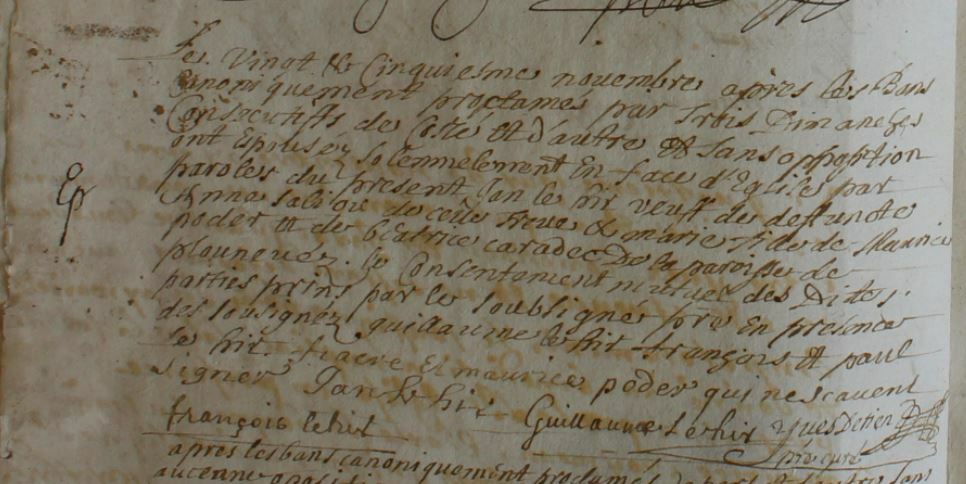 Le Vingt & Cinquiesme novembre apres les Bans
Canoniquement proclames par trois Dimanches
Consecutifs de Costé et d'autre & sans opposition
ont Espousez solemnelement En face d'Eglise par
paroles du present Jan le hir veuff de deffuncte
Anna de ceste treve & marie fille de Maurice
poder et de beatrice caradec De la paroisse de
plounevez. le Consentament mutuel des Dites
parties prins par le soubsigné pre En presence
des sousignez guillaume le hir françois et paul
le hir fiacre et maurice poder qui ne scavent
signer Jan le hir
françois le hir Guillaume Le hir yves
curé
apres les bans canoniquement proclamés
aucenne